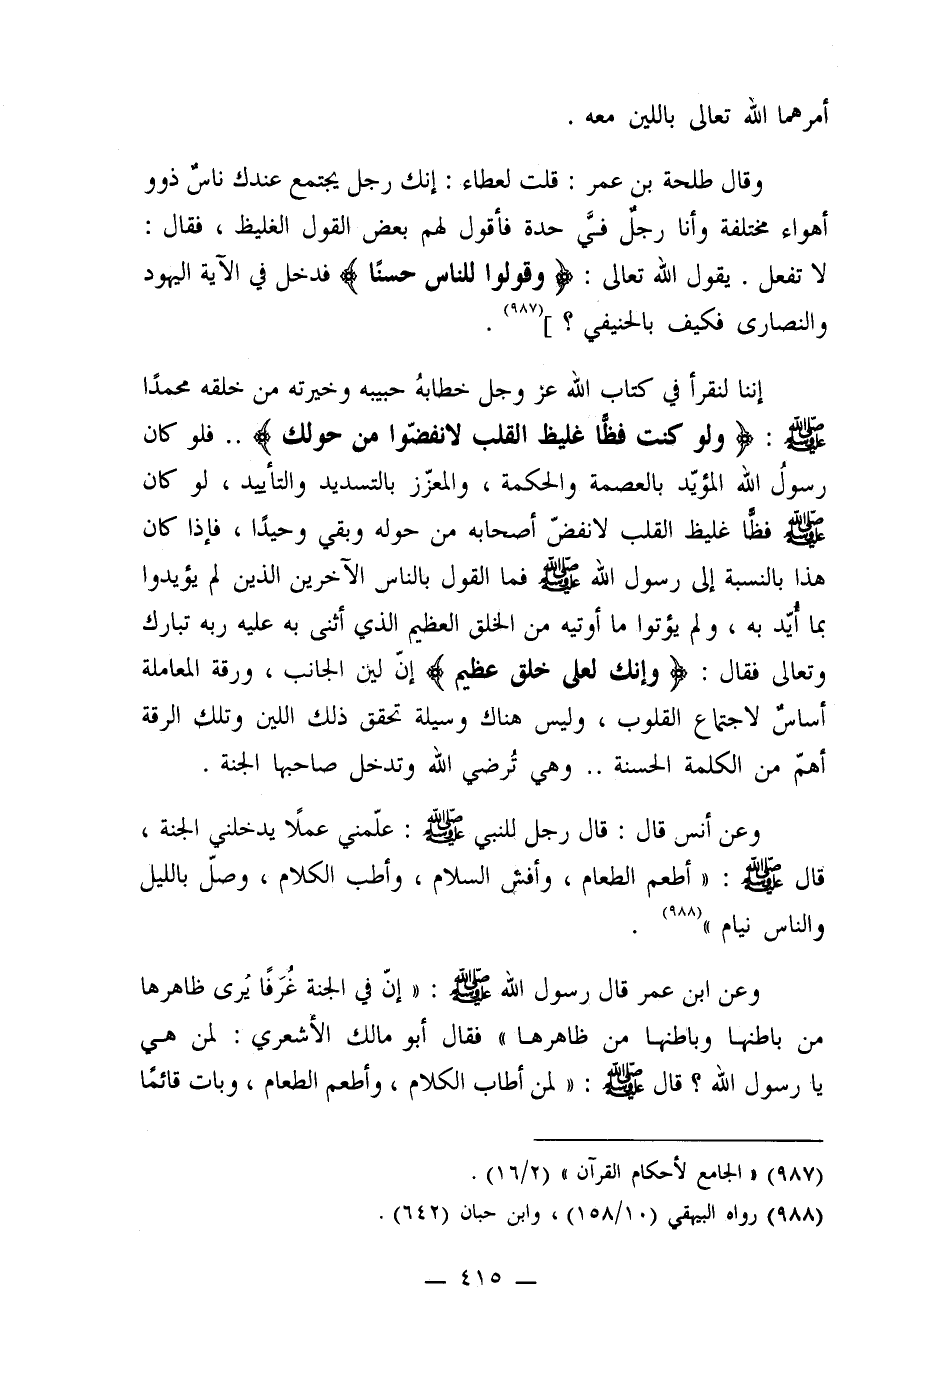 أمرهما الله تعالى باللين معه .
وقال طلحة بن عمر : قلت لعطاء : إنك رجل يجتمع عندك ناسٌ ذوو
أهواء مختلفة وأنا رجلٌ فيَّ حدة فأقول لهم بعض القول الغليظ ، فقال :
لا تفعل . يقول الله تعالى : ﴿ وقولوا للناس حسنًا ﴾ فدخل في الآية اليهود
والنصارى فكيف بالحنيفي ؟ ](٩٨٧) .
إننا لنقرأ في كتاب الله عز وجل خطابهُ حبيبه وخيرته من خلقه محمدًا
ﷺ : ﴿ ولو كنت فظًّا غليظ القلب لانفضّوا من حولك ﴾ .. فلو كان
رسولُ الله المؤيّد بالعصمة والحكمة ، والمعزّز بالتسديد والتأييد ، لو كان
ﷺ فظًّا غليظ القلب لانفضّ أصحابه من حوله وبقي وحيدًا ، فإذا كان
هذا بالنسبة إلى رسول الله ﷺ فما القول بالناس الآخرين الذين لم يؤيدوا
بما أُيّد به ، ولم يؤتوا ما أوتيه من الخلق العظيم الذي أثنى به عليه ربه تبارك
وتعالى فقال : ﴿ وإنك لعلى خلق عظيم ﴾ إنّ لين الجانب ، ورقة المعاملة
أساسٌ لاجتماع القلوب ، وليس هناك وسيلة تحقق ذلك اللين وتلك الرقة
أهمّ من الكلمة الحسنة .. وهي تُرضي الله وتدخل صاحبها الجنة .
وعن أنس قال : قال رجل للنبي ﷺ : علّمني عملًا يدخلني الجنة ،
قال ﷺ : « أطعم الطعام ، وأفشِ السلام ، وأطب الكلام ، وصلّ بالليل
والناس نيام »(٩٨٨) .
وعن ابن عمر قال رسول الله ﷺ : « إنّ في الجنة غُرَفًا يُرى ظاهرها
من باطنها وباطنها من ظاهرها » فقال أبو مالك الأشعري : لمن هي
يا رسول الله ؟ قال ﷺ : « لمن أطاب الكلام ، وأطعم الطعام ، وبات قائمًا
(٩٨٧) « الجامع لأحكام القرآن » (١٦/٢) .
(٩٨٨) رواه البيهقي (١٥٨/١٠) ، وابن حبان (٦٤٢) .
— ٤١٥ —